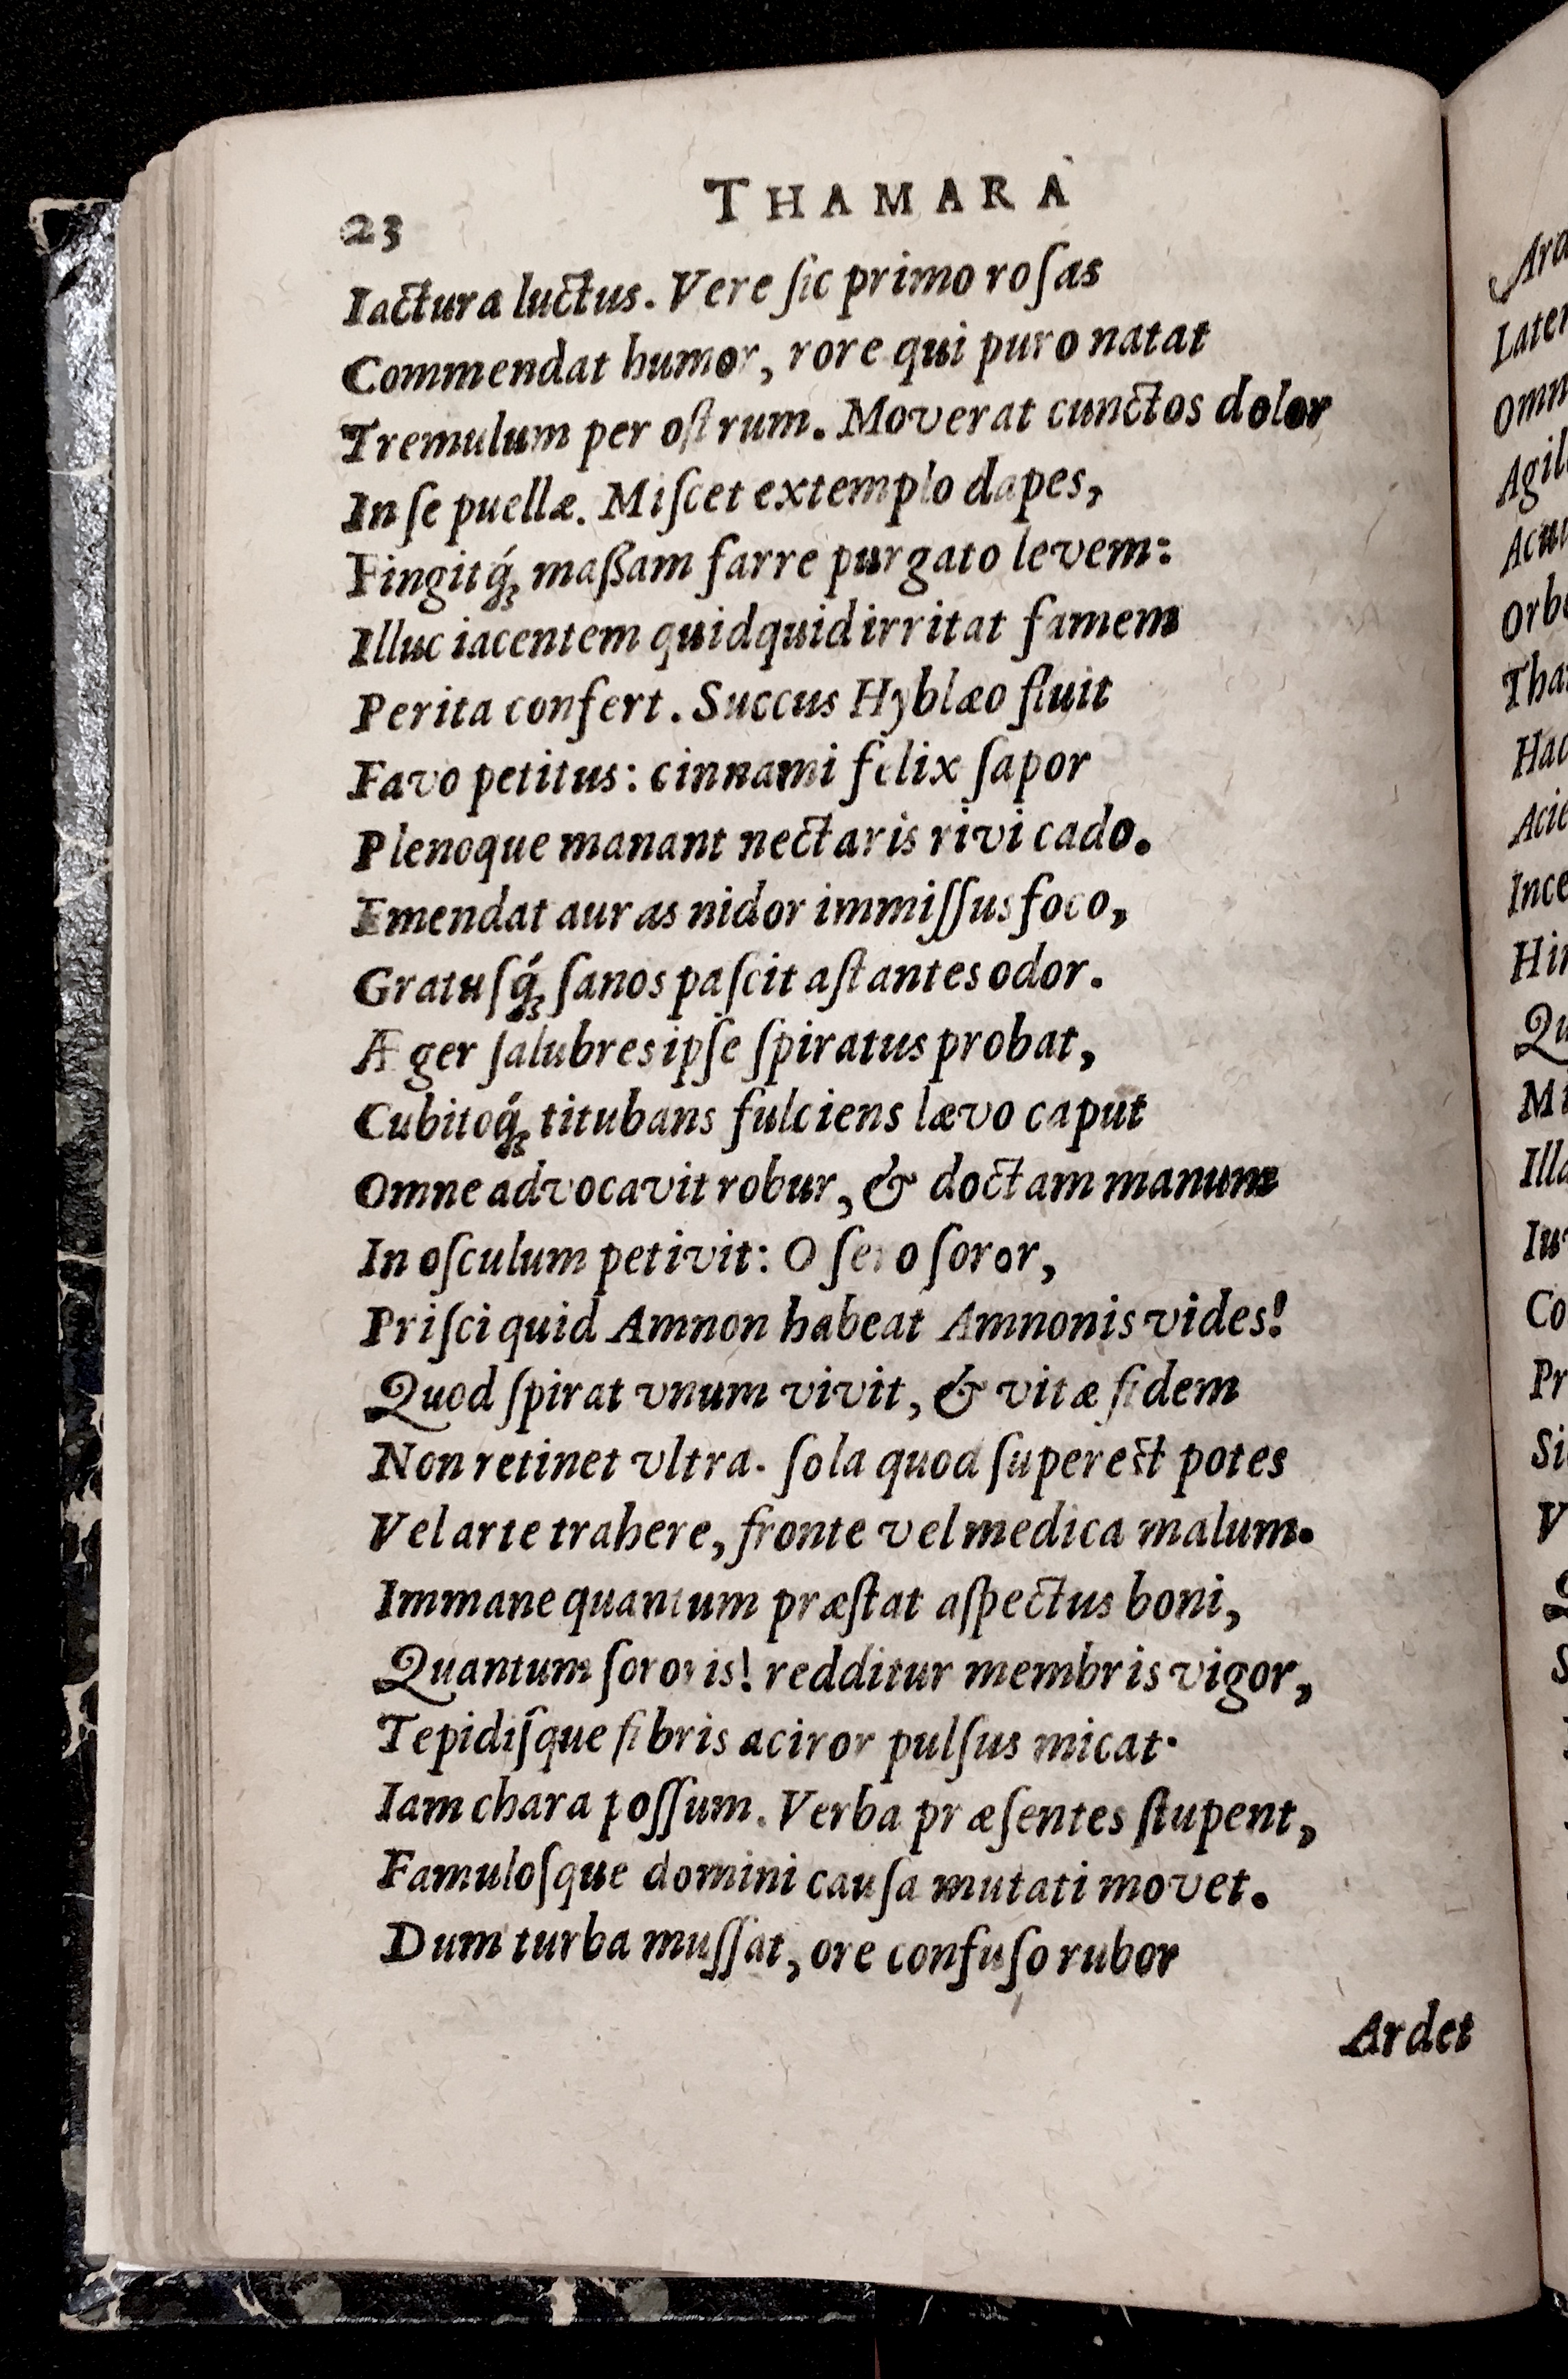 23 THAMARA
Iactura luctus. Vere ſic primo roſas
Commendat humor, rore qui puro natat
Tremulum per oſtrum. Moverat cunctos dolor
In ſe puellæ. Miſcet extemplo dapes,
Fingitq́ꝫ maßam farre purgato levem:
Illuc iacentem quidquid irritat famem
Perita confert. Succus Hyblæo fluit
Favo petitus: cinnami felix ſapor
Plenoque manant nectaris rivi cado.
Emendat auras nidor immiſſus foco,
Gratuſq́ꝫ ſanos paſcit aſtantes odor.
Æger ſalubres ipſe ſpiratus probat,
Cubitoq́ꝫ titubans fulciens lævo caput
Omne advocavit robur, & doctam manum
In oſculum petivit: O ſero ſoror,
Priſci quid Amnon habeat Amnonis vides!
Quod ſpirat vnum vivit, & vitæ fidem
Non retinet vltra. ſola quod ſupereſt potes
Vel arte trahere, fronte vel medica malum.
Immane quantum præſtat aſpectus boni,
Quantum ſororis! redditur membris vigor,
Tepidiſque fibris aciror pulſus micat.
Iam chara poſſum. Verba præſentes ſtupent,
Famuloſque domini cauſa mutati movet.
Dum turba muſſat, ore confuſo rubor
Ardet
Late
Omn
Agil
Orb
Tha
Acie
Ince
Qu
Illa
Co
Pr
Si
V